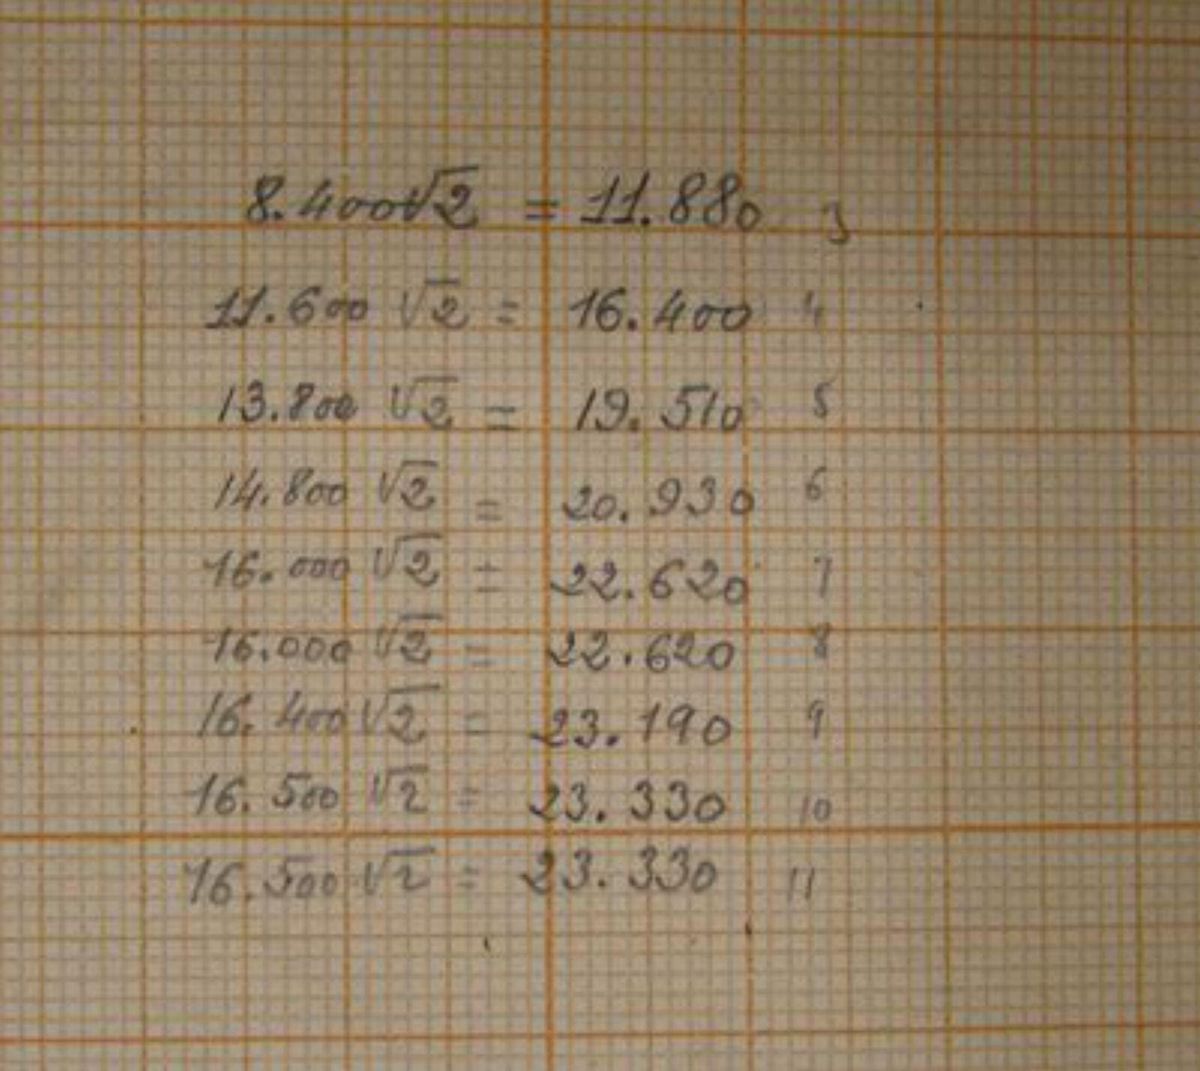 8.400√2 = 11.880 3
11.600 √2 = 16.400 4
13.800 √2 = 19.510 5
14.800 √2 = 20.930 6
16.000 √2 = 22.620 7
16.000 √2 = 22.620 8
16.400 √2 = 23.190 9
16.500 √2 = 23.330 10
16.500 √2 = 23.330 11